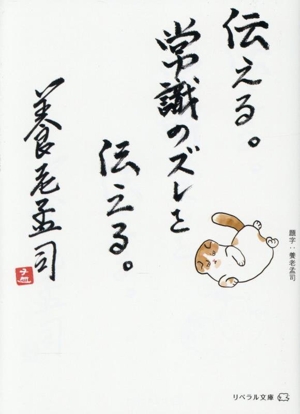 伝える。
常識のズレを
伝える。
養老孟司
題字：養老孟司
リベラル文庫